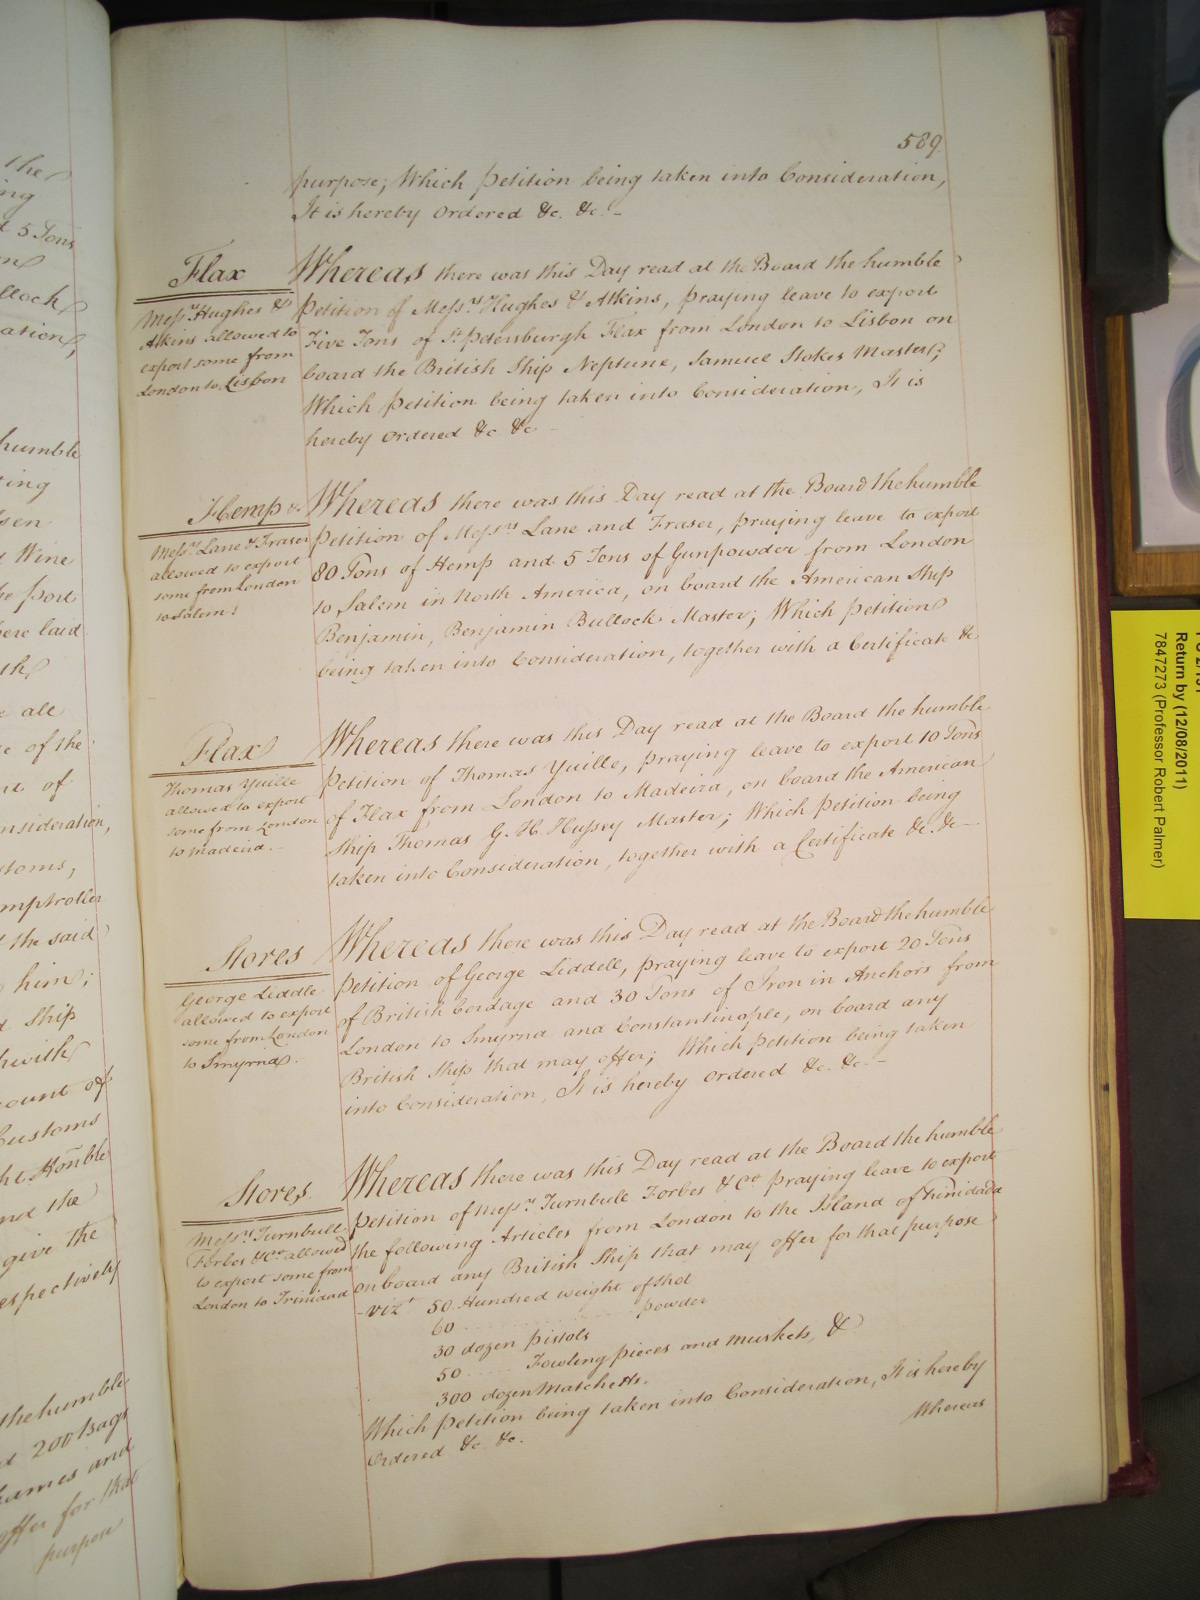 589.
purpose; Which Petition being taken into Consideration,
It is hereby Ordered &c. &c. -
Flax
Messrs Hughes &
Atkins allowed to
export some from
London to Lisbon
Whereas there was this Day read at the Board the humble
Petition of Messrs Hughes & Atkins, praying leave to export
Five Tons of St Petersburgh Flax from London to Lisbon on
board the British Ship Neptune, Samuel Stokes Master;
Which Petition being taken into Consideration, It is
hereby Ordered &c &c -
Hemp &c
Messrs Lane & Fraser
allowed to export
some from London
to Salem.
Whereas there was this Day read at the Board the humble
Petition of Messrs Lane and Fraser, praying leave to export
80 Tons of Hemp and 5 Tons of Gunpowder from London
to Salem in North America, on board the American Ship
Benjamin, Benjamin Bullock Master; Which Petition
being taken into Consideration, together with a Certificate &c
Flax
Thomas Yuille
allowed to export
some from London
to Madeira. -
Whereas there was this Day read at the Board the humble
Petition of Thomas Yuille, praying leave to export 10 Tons
of Flax from London to Madeira, on board the American
Ship Thomas G. H. Hussey Master; Which Petition being
taken into Consideration, together with a Certificate &c. &c -
Stores
George Liddle
allowed to export
some from London
to Smyrna.
Whereas there was this Day read at the Board the humble
Petition of George Liddell, praying leave to export 20 Tons
of British Cordage and 30 Tons of Iron in Anchors from
London to Smyrna and Constantinople, on board any
British Ship that may offer; Which Petition being taken
into Consideration, It is hereby Ordered &c. &c. -
Stores.
Messrs Turnbull
Forbes & Co allowed
to export some from
London to Trinidad
Whereas there was this Day read at the Board the humble
Petition of Messrs Turnbull Forbes & Co praying leave to export
the following Articles from London to the Island of Trinidada
on board any British Ship that may offer for that purpose
- vizt 50 Hundred weight of Shot
60 . . . . . . . . . . Powder
30 dozen Pistols
50 . . . . Fowling pieces and Muskets, &
300 dozen Matchetts.
Which Petition being taken into Consideration, It is hereby
Ordered &c. &c.
Whereas
the
5 Tons
humble
Wine
the Port
were laid
all
of the
of
Customs,
Comptroller
the said
him;
Ship
Customs
Honble
and the
give the
respectively
the humble
200 Bags
and
offer for that
purpose
Return by (12/08/2011)
7847273 (Professor Robert Palmer)